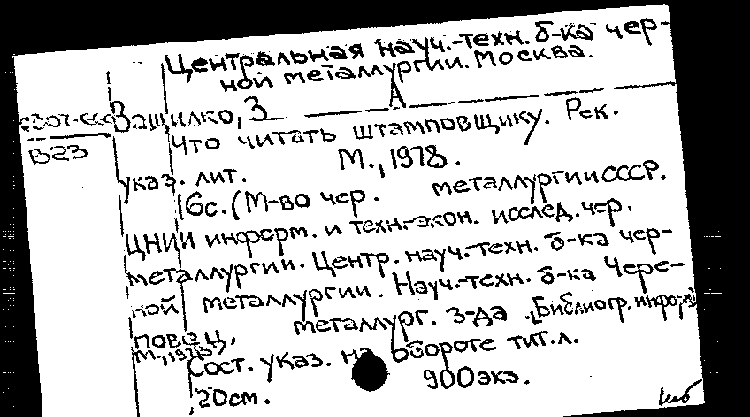 Центральная науч.-техн. б-ка чер-
ной металлургии. Москва.
А
Вашилко, З
В23
Что читать штамповщику. Рек.
указ. лит. М., 1978.
16с. (М-во чер. металлургии СССР.
ЦНИИ информ. и техн.-экон. исслед. чер.
металлургии. Центр. науч.-техн. б-ка чер-
ной металлургии. Науч.-техн. б-ка Чере-
повец. металлург. з-да. [Библиогр. информ]
М., 1978)
Сост. указ. на обороте тит. л.
20см. 900экз.